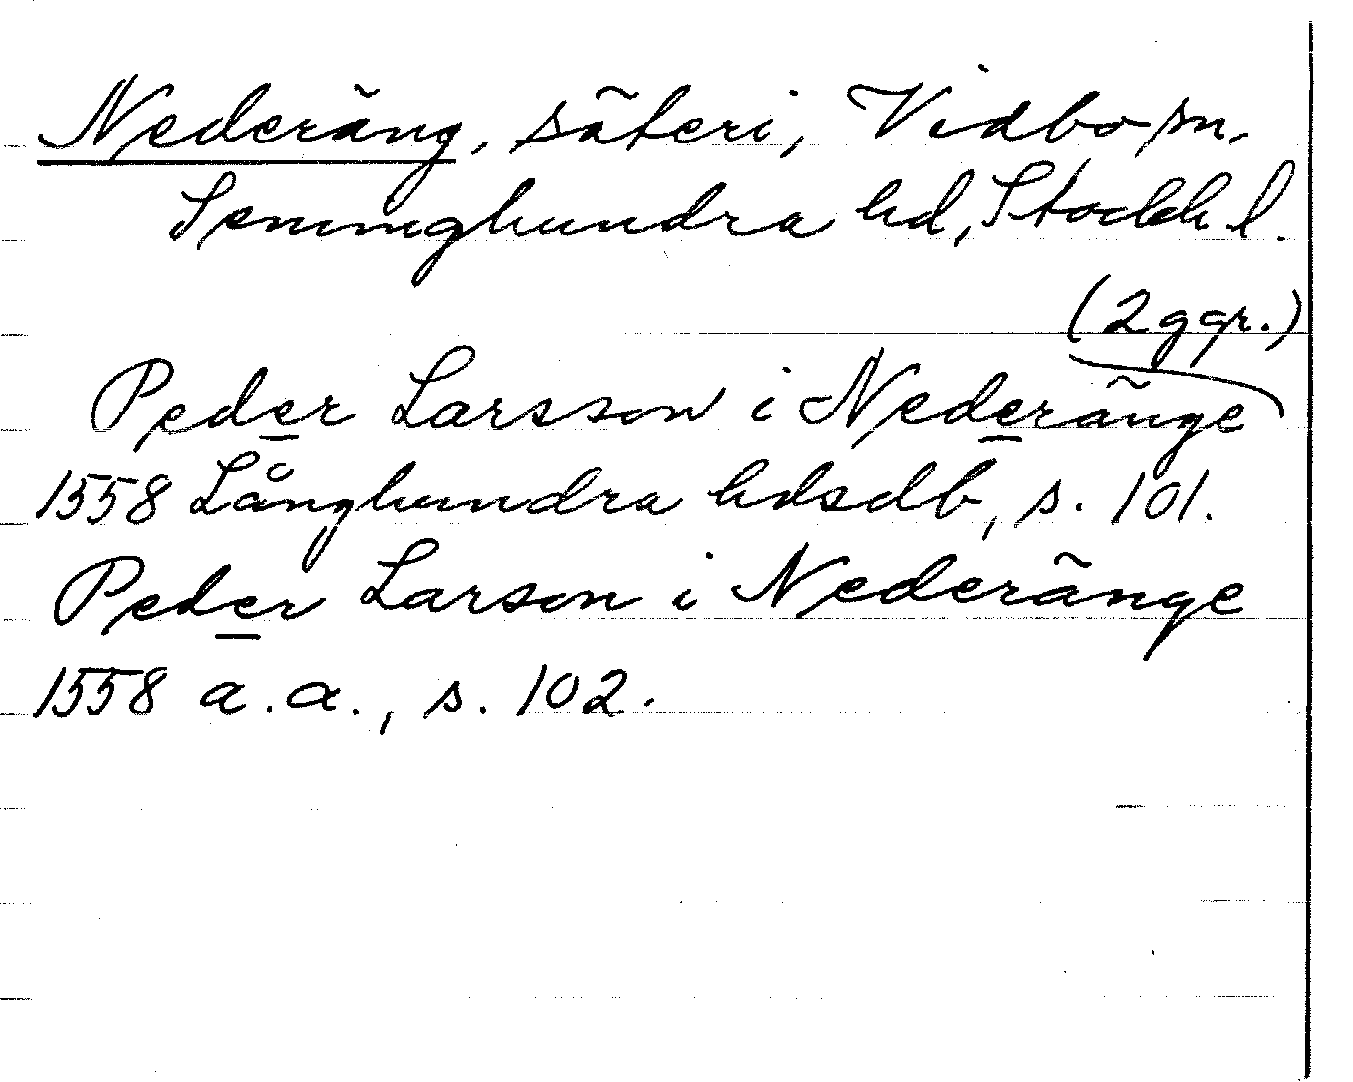 Nederäng, säteri, Vidbo sn,
Seminghundra hd, Stockh l.
(2 ggr.)
Peder Larsson i Nederänge
1558 Långhundra hdsdb, s. 101.
Peder Larson i Nederänge
1558 a.a., s. 102.